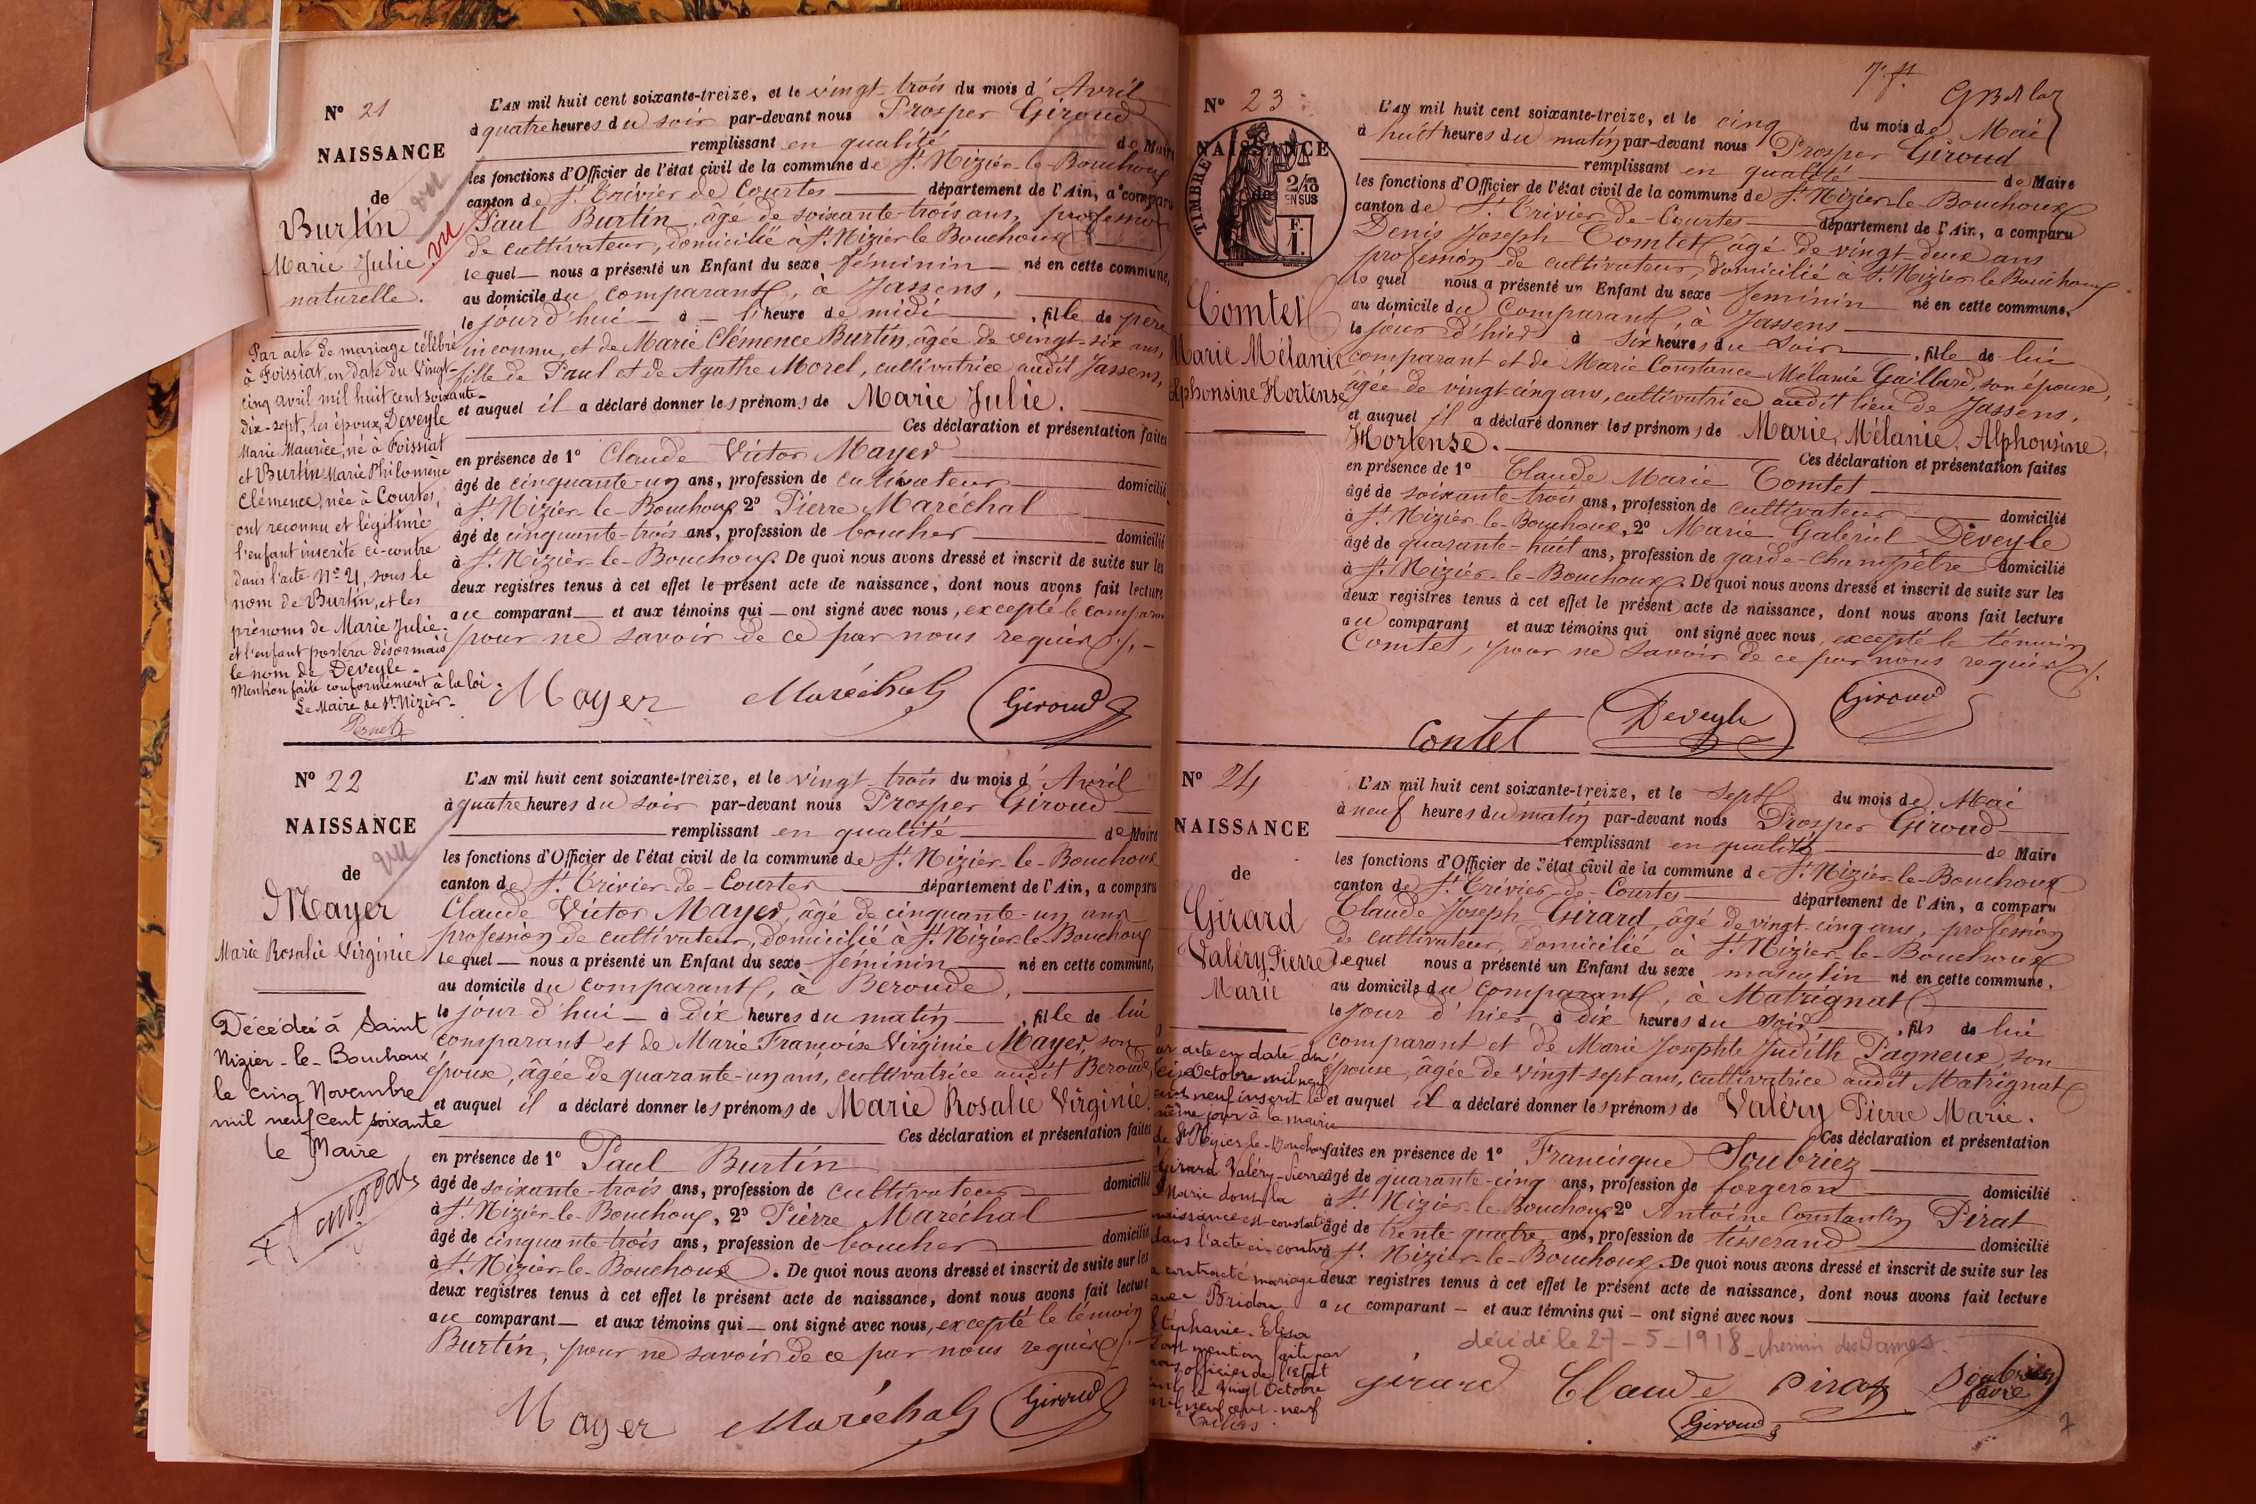 N° 21
NAISSANCE
de
Burtin
Marie Julie
naturelle.
vu
vu
Par acte de mariage célébré
à Foissiat, en date du Vingt-
cinq avril mil huit cent soixante-
dix-sept, les époux, Deveyle
Marie Maurice, né à Foissiat
et Burtin Marie Philomène
Clémence, née à Courtes,
ont reconnu et légitimé
l'enfant inscrite ci-contre
dans l'acte N° 21, sous le
nom de Burtin, et les
prénoms de Marie Julie.
et l'enfant portera désormais
le nom de Deveyle.
Mention faite conformément à la loi.
Le Maire de St Nizier.
L'AN mil huit cent soixante-treize, et le vingt-trois du mois d'Avril
à quatre heures du soir par-devant nous Prosper Giroud
remplissant en qualité de Maire
les fonctions d'Officier de l'état civil de la commune de St Nizier-le-Bouchoux
canton de St Trivier de Courtes département de l'Ain, a comparu
Paul Burtin, âgé de soixante-trois ans, profession
de cultivateur, domicilié à St Nizier le Bouchoux
lequel nous a présenté un Enfant du sexe féminin né en cette commune,
au domicile du comparant, à Jassens,
le jour d'hui à l'heure de midi, fille de père
inconnu, et de Marie Clémence Burtin, âgée de vingt-six ans,
fille de Paul et de Agathe Morel, cultivatrice audit Jassens,
et auquel il a déclaré donner les prénoms de Marie Julie.
Ces déclaration et présentation faites
en présence de 1° Claude Victor Mayer
âgé de cinquante-un ans, profession de cultivateur domicilié
à St Nizier-le-Bouchoux 2° Pierre Maréchal
âgé de cinquante-trois ans, profession de boucher domicilié
à St Nizier-le-Bouchoux. De quoi nous avons dressé et inscrit de suite sur les
deux registres tenus à cet effet le présent acte de naissance, dont nous avons fait lecture
au comparant et aux témoins qui ont signé avec nous, excepté le comparant
pour ne savoir de ce par nous requis ./.
Mayer Maréchal Giroud
N° 22
NAISSANCE
de
vu
Mayer
Marie Rosalie Virginie
Décédée à Saint
Nizier-le-Bouchoux
le cinq Novembre
mil neuf cent soixante
le Maire
L'AN mil huit cent soixante-treize, et le vingt-trois du mois d'Avril
à quatre heures du soir par-devant nous Prosper Giroud
remplissant en qualité de Maire
les fonctions d'Officier de l'état civil de la commune de St Nizier-le-Bouchoux
canton de St Trivier-de-Courtes département de l'Ain, a comparu
Claude Victor Mayer, âgé de cinquante-un ans
profession de cultivateur, domicilié à St Nizier-le-Bouchoux
lequel nous a présenté un Enfant du sexe féminin né en cette commune,
au domicile du comparant, à Beroude,
le jour d'hui à dix heures du matin, fille de lui
comparant et de Marie Françoise Virginie Mayer, son
épouse, âgée de quarante-un ans, cultivatrice audit Beroude,
et auquel il a déclaré donner les prénoms de Marie Rosalie Virginie.
Ces déclaration et présentation faites
en présence de 1° Paul Burtin
âgé de soixante-trois ans, profession de cultivateur domicilié
à St Nizier-le-Bouchoux, 2° Pierre Maréchal
âgé de cinquante-trois ans, profession de boucher domicilié
à St Nizier-le-Bouchoux. De quoi nous avons dressé et inscrit de suite sur les
deux registres tenus à cet effet le présent acte de naissance, dont nous avons fait lecture
au comparant et aux témoins qui ont signé avec nous, excepté le témoin
Burtin, pour ne savoir de ce par nous requis ./.
Mayer Maréchal Giroud
7e ft
N° 23
NAISSANCE
de
TIMBRE
2/10
EN SUS
F.
1.
Comtet
Marie Mélanie
Alphonsine Hortense
L'AN mil huit cent soixante-treize, et le cinq du mois de Mai
à huit heures du matin par-devant nous Prosper Giroud
remplissant en qualité de Maire
les fonctions d'Officier de l'état civil de la commune de St Nizier-le-Bouchoux
canton de St Trivier-de-Courtes département de l'Ain, a comparu
Denis Joseph Comtet, âgé de vingt-deux ans
profession de cultivateur, domicilié à St Nizier-le-Bouchoux
lequel nous a présenté un Enfant du sexe feminin né en cette commune,
au domicile du comparant, à Jassens
le jour d'hier à six heures du soir, fille de lui
comparant et de Marie Constance Mélanie Gaillard, son épouse,
âgée de vingt-cinq ans, cultivatrice audit lieu de Jassens,
et auquel il a déclaré donner les prénoms de Marie, Mélanie, Alphonsine,
Hortense.
Ces déclaration et présentation faites
en présence de 1° Claude Marie Comtet
âgé de soixante-trois ans, profession de cultivateur domicilié
à St Nizier-le-Bouchoux, 2° Marie Gabriel Deveyle
âgé de quarante-huit ans, profession de garde-champêtre domicilié
à St Nizier-le-Bouchoux. De quoi nous avons dressé et inscrit de suite sur les
deux registres tenus à cet effet le présent acte de naissance, dont nous avons fait lecture
au comparant et aux témoins qui ont signé avec nous, excepté le témoin
Comtet, pour ne savoir de ce par nous requis ./.
Contet Deveyle Giroud
N° 24
NAISSANCE
de
Girard
Valéry Pierre
Marie
acte en date du
Octobre mil neuf
cent neuf inscrit le
même jour à la mairie
de St Nizier-le-Bouchoux
Girard Valéry-Pierre
Marie dont la
naissance est constatée
dans l'acte ci-contre
a contracté mariage
avec Bridon
Stéphanie-Elisa
Dont mention faite par
nous officier de l'état
civil le vingt Octobre
mil neuf cent neuf
L'AN mil huit cent soixante-treize, et le sept du mois de Mai
à neuf heures du matin par-devant nous Prosper Giroud
remplissant en qualité de Maire
les fonctions d'Officier de l'état civil de la commune de St Nizier-le-Bouchoux
canton de St Trivier-de-Courtes département de l'Ain, a comparu
Claude Joseph Girard, âgé de vingt-cinq ans, profession
de cultivateur, domicilié à St Nizier-le-Bouchoux
lequel nous a présenté un Enfant du sexe masculin né en cette commune,
au domicile du comparant, à Matrignat
le jour d'hier à dix heures du soir, fils de lui
comparant et de Marie Josephte Judith Pagneux, son
épouse, âgée de vingt-sept ans, cultivatrice audit Matrignat
et auquel il a déclaré donner les prénoms de Valéry Pierre Marie.
Ces déclaration et présentation
faites en présence de 1° Francisque Soubriez
âgé de quarante-cinq ans, profession de forgeron domicilié
à St Nizier-le-Bouchoux 2° Antoine Constantin Pirat
âgé de trente-quatre ans, profession de tisserand domicilié
à St Nizier-le-Bouchoux. De quoi nous avons dressé et inscrit de suite sur les
deux registres tenus à cet effet le présent acte de naissance, dont nous avons fait lecture
au comparant et aux témoins qui ont signé avec nous
décédé le 27-5-1918 - chemin des Dames.
Girard Claude Pirat
Giroud
7